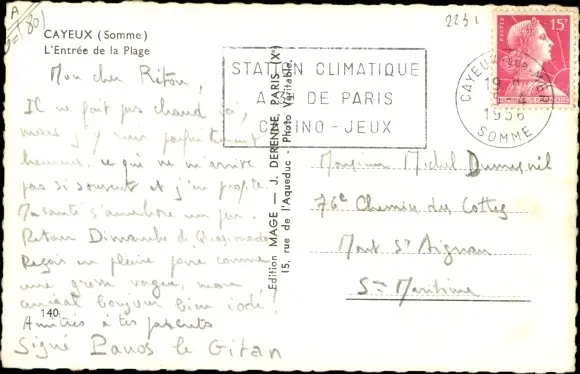 A
2231
CAYEUX (Somme)
L'Entrée de la Plage
Mon cher Riton,
Il ne fait pas chaud ici,
mais j'y suis parfaitement
heureux, ce qui ne m'arrive
pas si souvent et j'en profite.
Ma santé s'améliore un peu.
Retour Dimanche de Quasimodo
Reçois en pleine poire comme
une grosse vague, mon
amical bonjour bien iodé,
Amitiés à tes parents
Signé Panos le Gitan
140
Edition MAGE — J. DERENNE, PARIS (Xe)
15, rue de l'Aqueduc - Photo Véritable.
STATION CLIMATIQUE
A DE PARIS
CASINO - JEUX
CAYEUX-SUR-MER
19 H
1956
SOMME
POSTES
15F
Monsieur Michel Dumesnil
76e Chemin des Cottes
Mont St Aignan
Sne Maritime